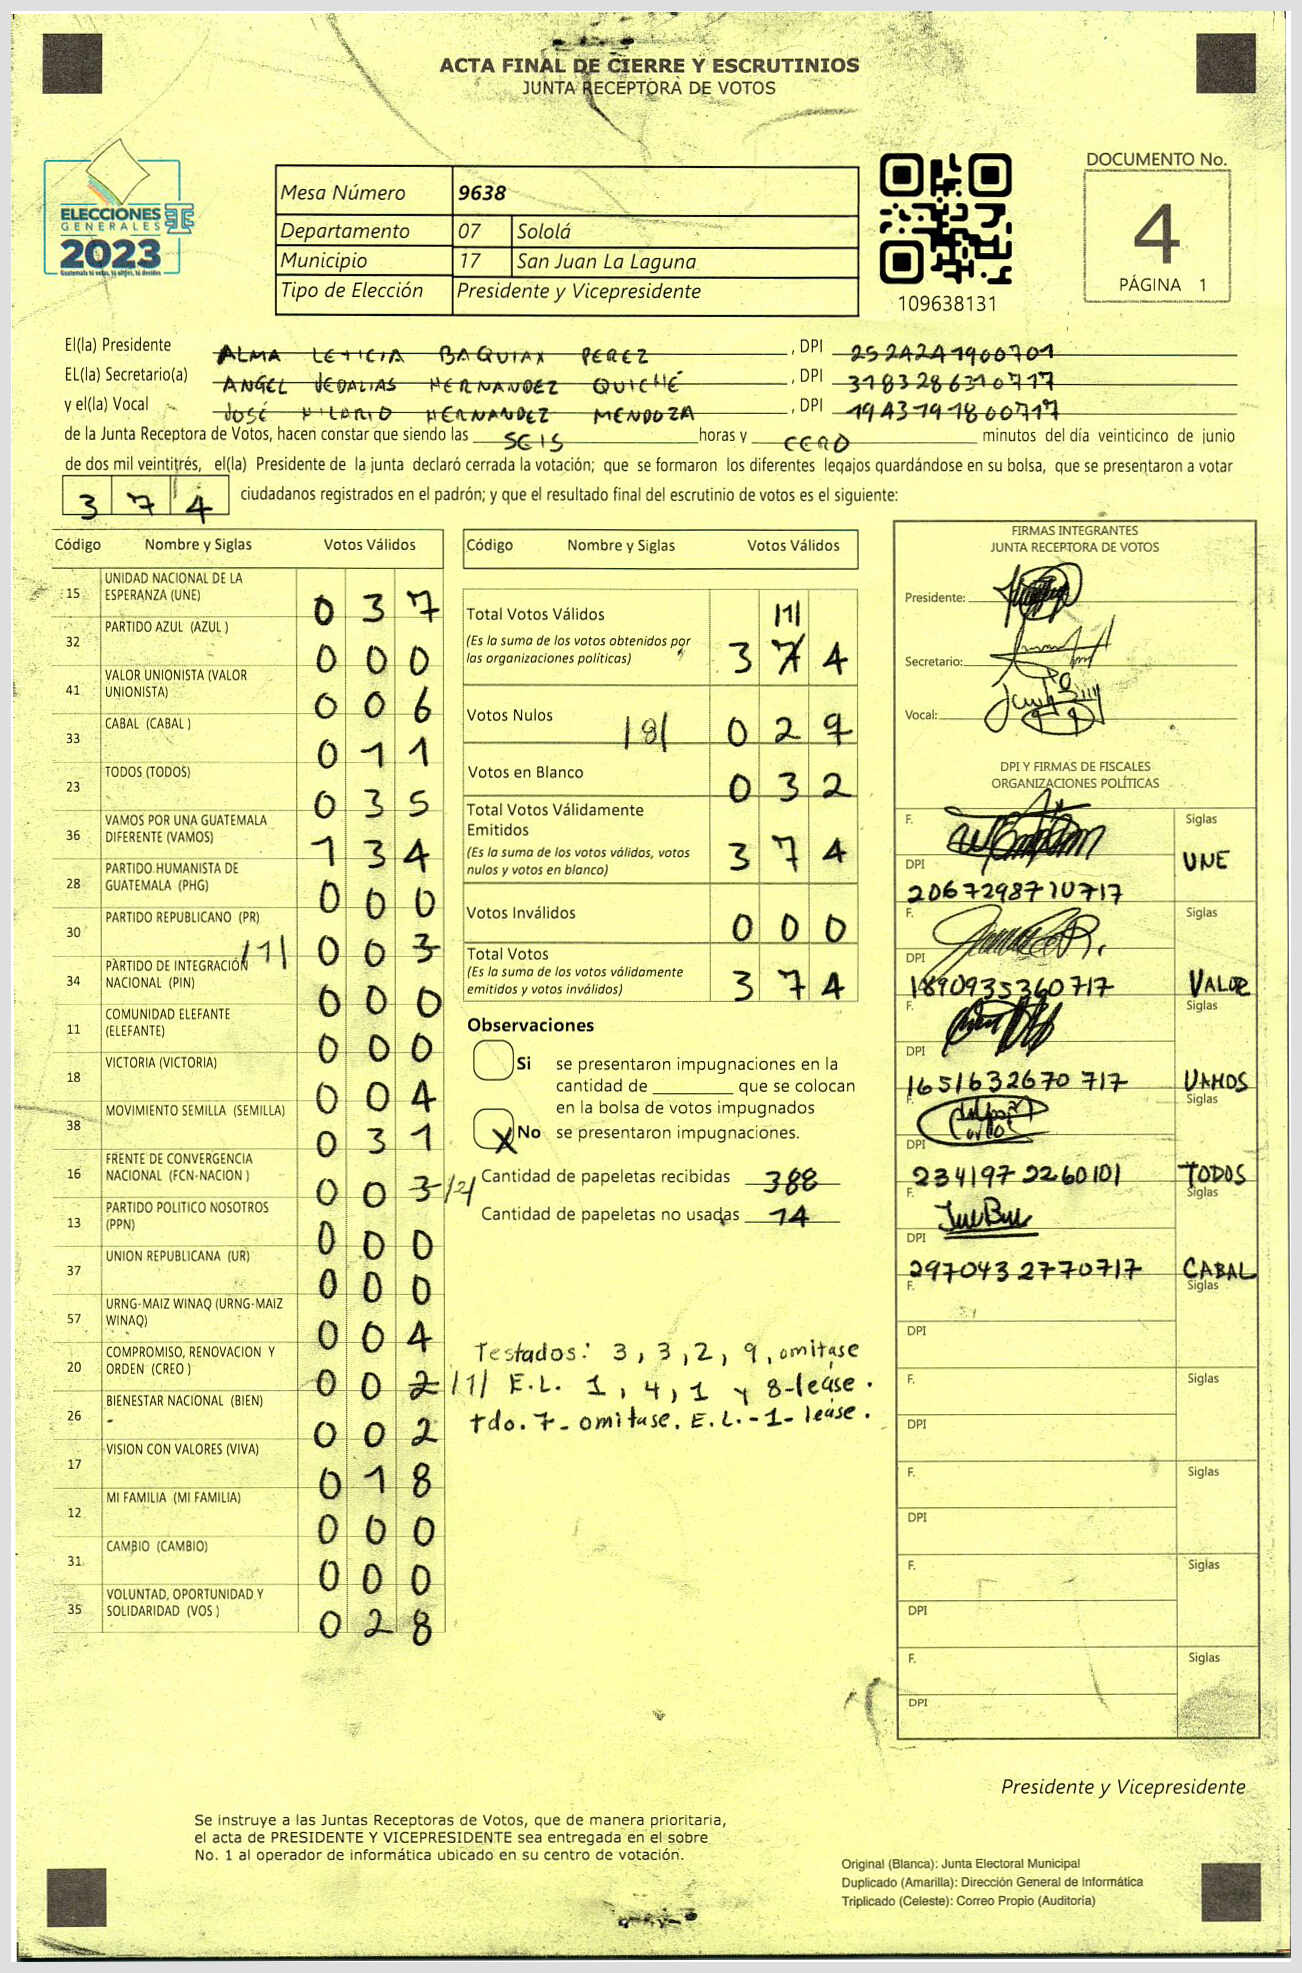 ACTA FINAL DE CIERRE Y ESCRUTINIOS
JUNTA RECEPTORA DE VOTOS
ELECCIONES
GENERALES
2023
Mesa Número 9638
Departamento 07 Sololá
Municipio 17 San Juan La Laguna
Tipo de Elección Presidente y Vicepresidente
109638131
DOCUMENTO No.
4
PÁGINA 1
El(la) Presidente ALMA LETICIA BAQUIAX PEREZ, DPI 2524241900701
EL(la) Secretario(a) ANGEL JEDALIAS HERNANDEZ QUICHÉ, DPI 3183286310717
y el(la) Vocal JOSÉ HILARIO HERNANDEZ MENDOZA, DPI 1943191800717
de la Junta Receptora de Votos, hacen constar que siendo las SEIS horas y CERO minutos del día veinticinco de junio
de dos mil veintitrés, el(la) Presidente de la junta declaró cerrada la votación; que se formaron los diferentes legajos guardándose en su bolsa, que se presentaron a votar
3 7 4 ciudadanos registrados en el padrón; y que el resultado final del escrutinio de votos es el siguiente:
Código Nombre y Siglas Votos Válidos
15 UNIDAD NACIONAL DE LA
ESPERANZA (UNE) 0 3 7
32 PARTIDO AZUL (AZUL ) 0 0 0
41 VALOR UNIONISTA (VALOR
UNIONISTA) 0 0 6
33 CABAL (CABAL ) 0 1 1
23 TODOS (TODOS) 0 3 5
36 VAMOS POR UNA GUATEMALA
DIFERENTE (VAMOS) 1 3 4
28 PARTIDO HUMANISTA DE
GUATEMALA (PHG) 0 0 0
30 PARTIDO REPUBLICANO (PR) /1/ 0 0 3
34 PARTIDO DE INTEGRACIÓN
NACIONAL (PIN) 0 0 0
11 COMUNIDAD ELEFANTE
(ELEFANTE) 0 0 0
18 VICTORIA (VICTORIA) 0 0 4
38 MOVIMIENTO SEMILLA (SEMILLA) 0 3 1
16 FRENTE DE CONVERGENCIA
NACIONAL (FCN-NACION ) 0 0 3
13 PARTIDO POLITICO NOSOTROS
(PPN) 0 0 0
37 UNION REPUBLICANA (UR) 0 0 0
57 URNG-MAIZ WINAQ (URNG-MAIZ
WINAQ) 0 0 4
20 COMPROMISO, RENOVACION Y
ORDEN (CREO ) 0 0 2 /1/
26 BIENESTAR NACIONAL (BIEN) 0 0 2
17 VISION CON VALORES (VIVA) 0 1 8
12 MI FAMILIA (MI FAMILIA) 0 0 0
31 CAMBIO (CAMBIO) 0 0 0
35 VOLUNTAD, OPORTUNIDAD Y
SOLIDARIDAD (VOS ) 0 2 8
Código Nombre y Siglas Votos Válidos
Total Votos Válidos /1/
(Es la suma de los votos obtenidos por
las organizaciones políticas) 3 7 4
Votos Nulos /8/ 0 2 9
Votos en Blanco 0 3 2
Total Votos Válidamente
Emitidos
(Es la suma de los votos válidos, votos
nulos y votos en blanco) 3 7 4
Votos Inválidos 0 0 0
Total Votos
(Es la suma de los votos válidamente
emitidos y votos inválidos) 3 7 4
Observaciones
Si se presentaron impugnaciones en la
cantidad de ________ que se colocan
en la bolsa de votos impugnados
X No se presentaron impugnaciones.
Cantidad de papeletas recibidas 388
Cantidad de papeletas no usadas 14
Testados: 3, 3, 2, 9, omitase
E.L. 1, 4, 1 y 8-lease.
tdo. 7- omitase. E.L.-1- lease.
FIRMAS INTEGRANTES
JUNTA RECEPTORA DE VOTOS
Presidente:
Secretario:
Vocal:
DPI Y FIRMAS DE FISCALES
ORGANIZACIONES POLÍTICAS
F. Siglas
DPI UNE
2067298710717
F. Siglas
DPI
1890935360717 VALOR
F. Siglas
DPI
1651632670717 VAMOS
F. Siglas
DPI
2341972260101 TODOS
F. Siglas
DPI
2970432770717 CABAL
F. Siglas
DPI
F. Siglas
DPI
F. Siglas
DPI
F. Siglas
DPI
F. Siglas
DPI
Presidente y Vicepresidente
Se instruye a las Juntas Receptoras de Votos, que de manera prioritaria,
el acta de PRESIDENTE Y VICEPRESIDENTE sea entregada en el sobre
No. 1 al operador de informática ubicado en su centro de votación.
Original (Blanca): Junta Electoral Municipal
Duplicado (Amarilla): Dirección General de Informática
Triplicado (Celeste): Correo Propio (Auditoria)